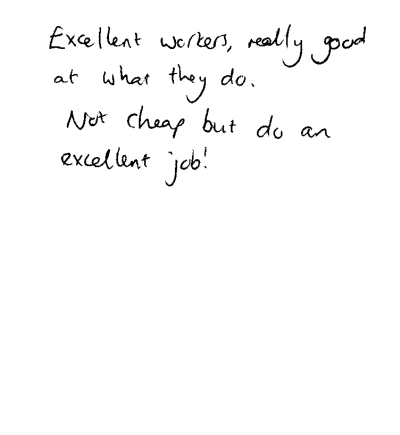 Excellent workers, really good
at what they do.
Not cheap but do an
excellent job!